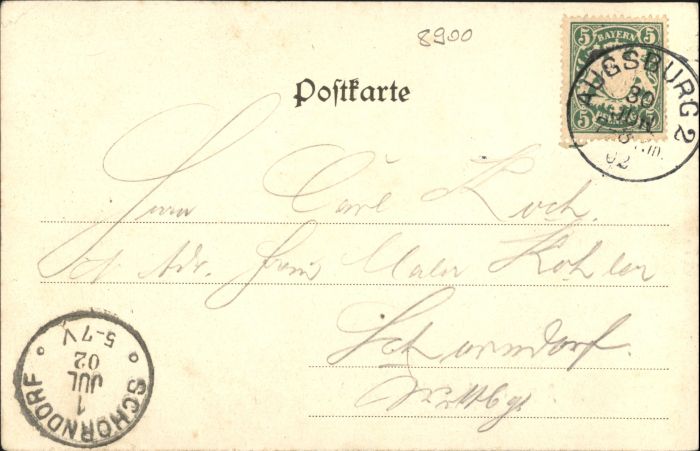 8900
5 BAYERN 5
5 5
AUGSBURG 2
30
JUN
5
02
Postkarte
Herrn Carl Koch.
Adr. Herrn Maler Köhler
Schorndorf.
Württbg.
SCHORNDORF
1
JUL
02
5-7 V